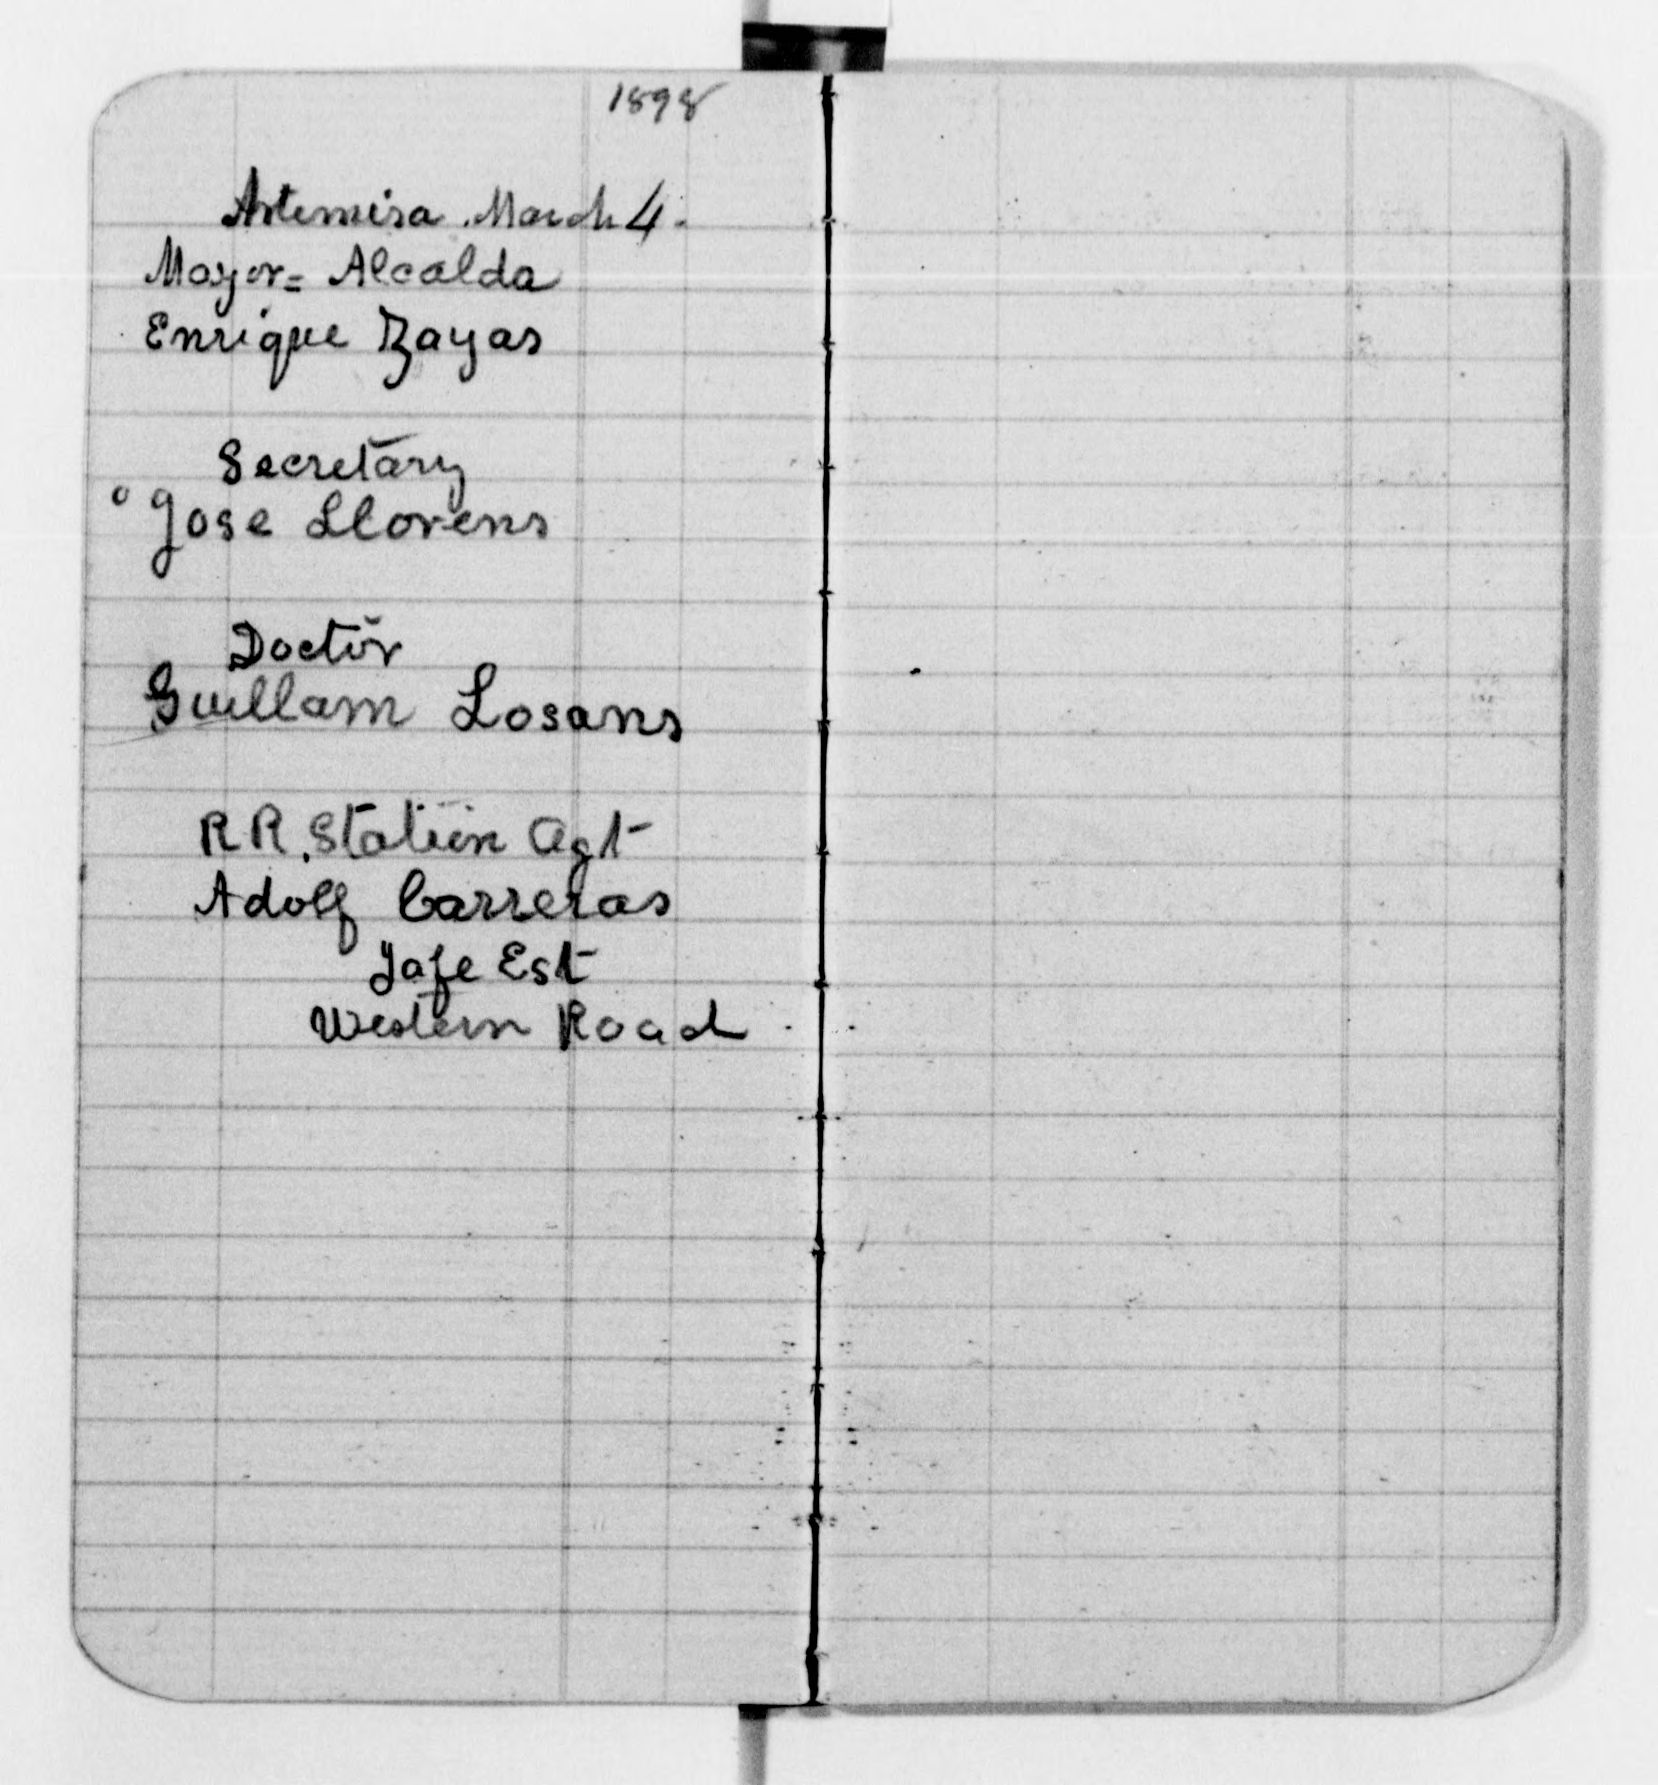 1898
Artemisa March 4.
Mayor = Alcalda
Enrique Zayas
Secretary
Jose Llorens
Doctor
Guillam Losans
R R. Station Agt
Adolf Carreras
Jafe Est
Western Road